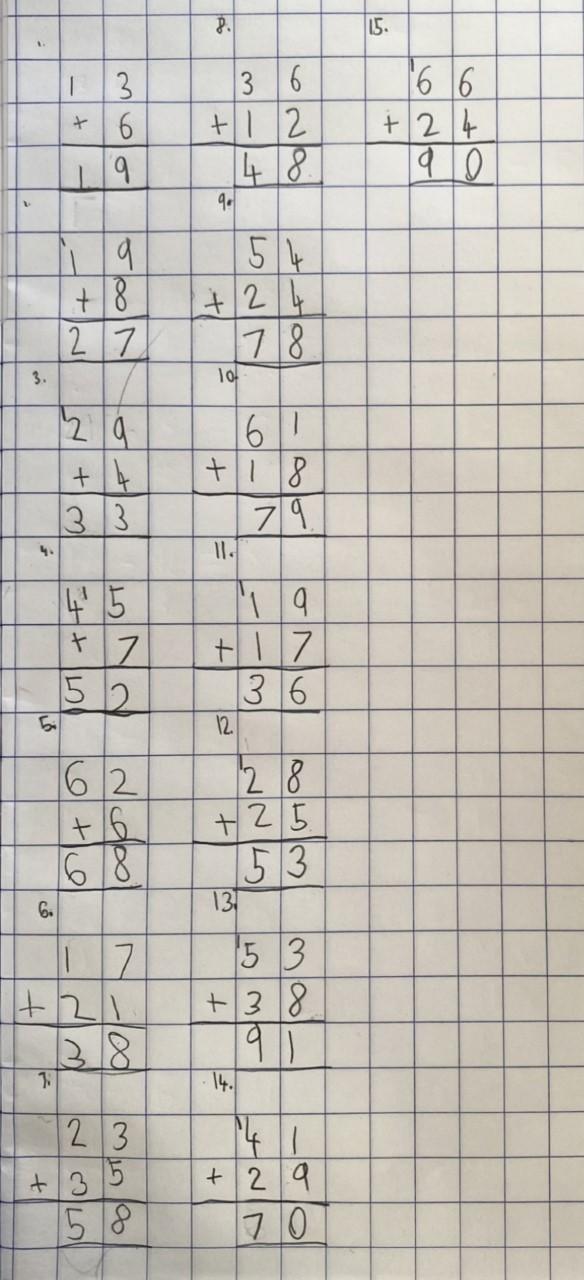 1.
1 3
+ 6
1 9
1 9
+ 8
2 7
3.
2 9
+ 4
3 3
4.
4 5
+ 7
5 2
5.
6 2
+ 6
6 8
6.
1 7
+ 2 1
3 8
7.
2 3
+ 3 5
5 8
8.
3 6
+ 1 2
4 8
9.
5 4
+ 2 4
7 8
10.
6 1
+ 1 8
7 9
11.
1
1 9
+ 1 7
3 6
12.
1
2 8
+ 2 5
5 3
13.
1
5 3
+ 3 8
9 1
14.
1
4 1
+ 2 9
7 0
15.
1
6 6
+ 2 4
9 0